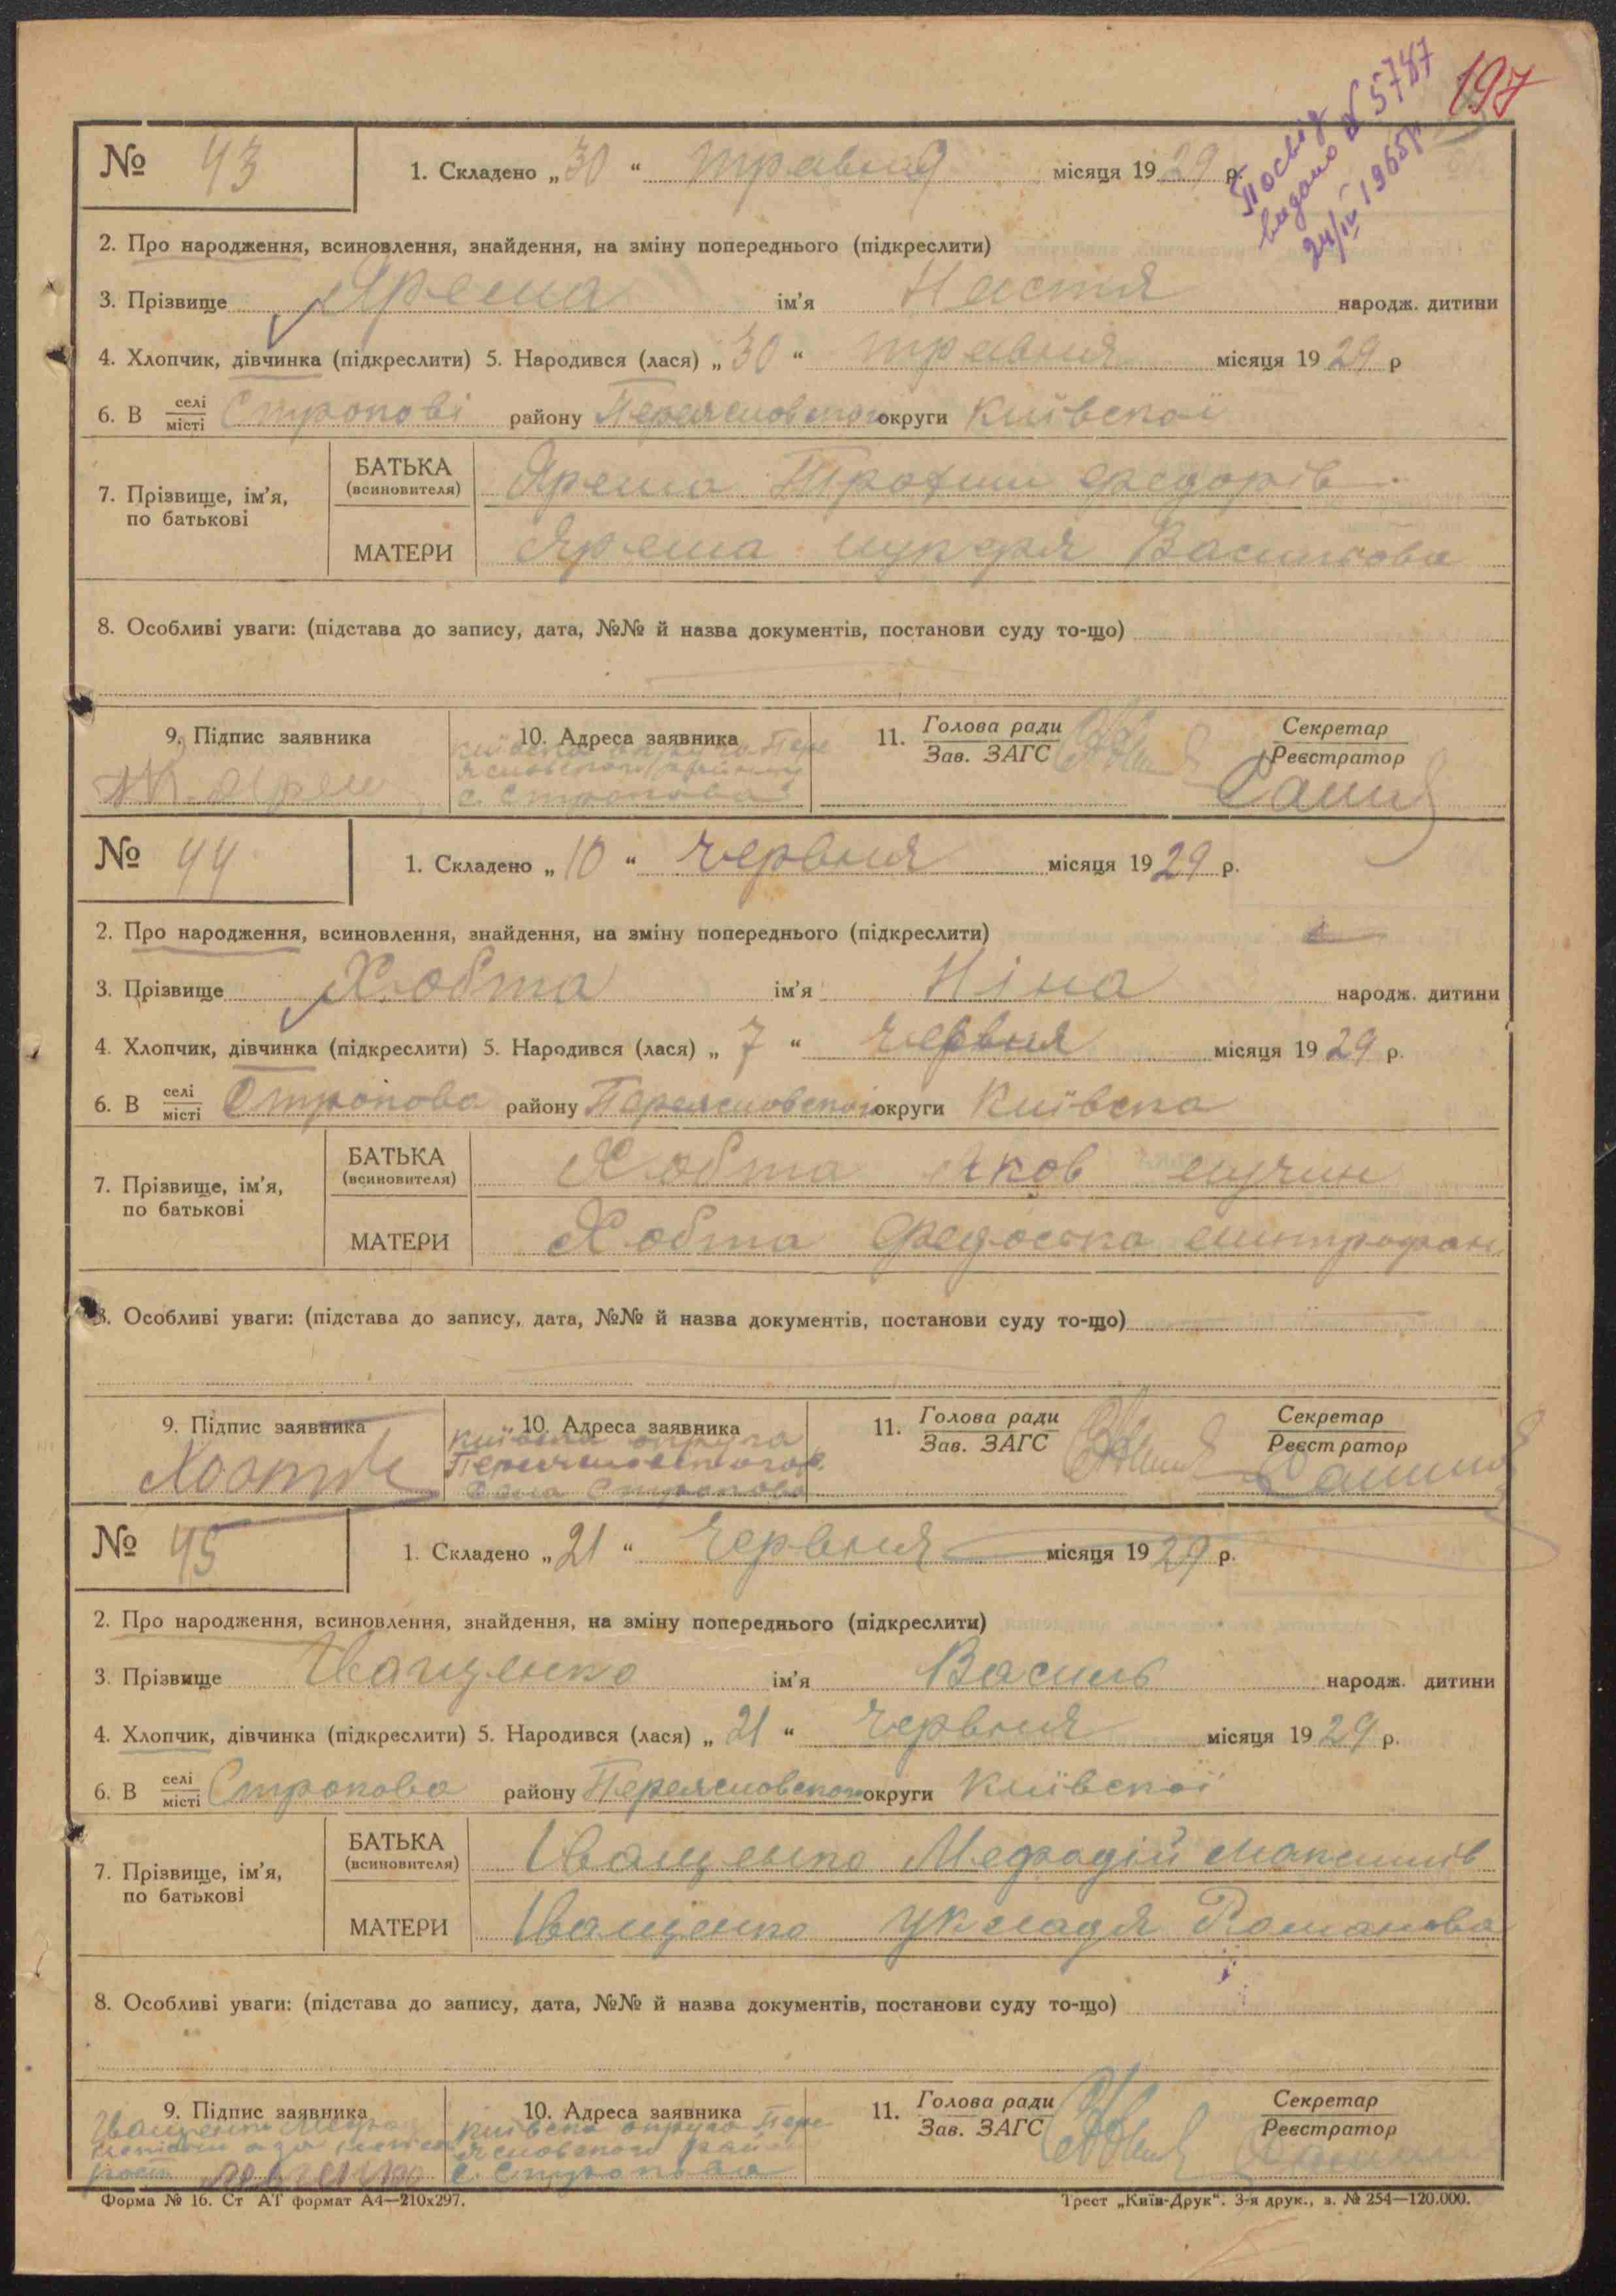 197
Посвід
видано № 5787
24/IV 1965р
№ 43
1. Складено „30“ травня місяця 1929 р.
2. Про народження, всиновлення, знайдення, на зміну попереднього (підкреслити)
3. Прізвище Ярема ім'я Настя народж. дитини
4. Хлопчик, дівчинка (підкреслити) 5. Народився (лася) „30“ травня місяця 1929 р
6. В селі місті Строкові району Переяславського округи Київської
7. Прізвище, ім'я, по батькові
БАТЬКА (всиновителя) Ярема Трохим Федорів
МАТЕРИ Ярема Василькова
8. Особливі уваги: (підстава до запису, дата, №№ й назва документів, постанови суду то-що)
9. Підпис заявника
10. Адреса заявника
11. Голова ради Зав. ЗАГС
Секретар Реєстратор
с. Строкова
№ 44
1. Складено „10“ червня місяця 1929 р.
2. Про народження, всиновлення, знайдення, на зміну попереднього (підкреслити)
3. Прізвище Хобта ім'я Ніна народж. дитини
4. Хлопчик, дівчинка (підкреслити) 5. Народився (лася) „7“ червня місяця 1929 р.
6. В селі місті Строкова району Переяславського округи Київська
7. Прізвище, ім'я, по батькові
БАТЬКА (всиновителя) Хобта Яков
МАТЕРИ Хобта Федоска митрофан
8. Особливі уваги: (підстава до запису, дата, №№ й назва документів, постанови суду то-що)
9. Підпис заявника
10. Адреса заявника
11. Голова ради Зав. ЗАГС
Секретар Реєстратор
Київська округа
села Строкова
№ 45
1. Складено „21“ Червня місяця 1929 р.
2. Про народження, всиновлення, знайдення, на зміну попереднього (підкреслити)
3. Прізвище Іващенко ім'я Василь народж. дитини
4. Хлопчик, дівчинка (підкреслити) 5. Народився (лася) „21“ Червня місяця 1929 р.
6. В селі місті Строкова району Переяславського округи Київської
7. Прізвище, ім'я, по батькові
БАТЬКА (всиновителя) Іващенко Мефодій Максимів
МАТЕРИ Іващенко Романова
8. Особливі уваги: (підстава до запису, дата, №№ й назва документів, постанови суду то-що)
9. Підпис заявника
10. Адреса заявника
11. Голова ради Зав. ЗАГС
Секретар Реєстратор
Київська округа Пере
с. Строкова
Форма № 16. Ст АТ формат А4—210х297.
Трест „Київ-Друк“. 3-я друк., з. № 254—120.000.